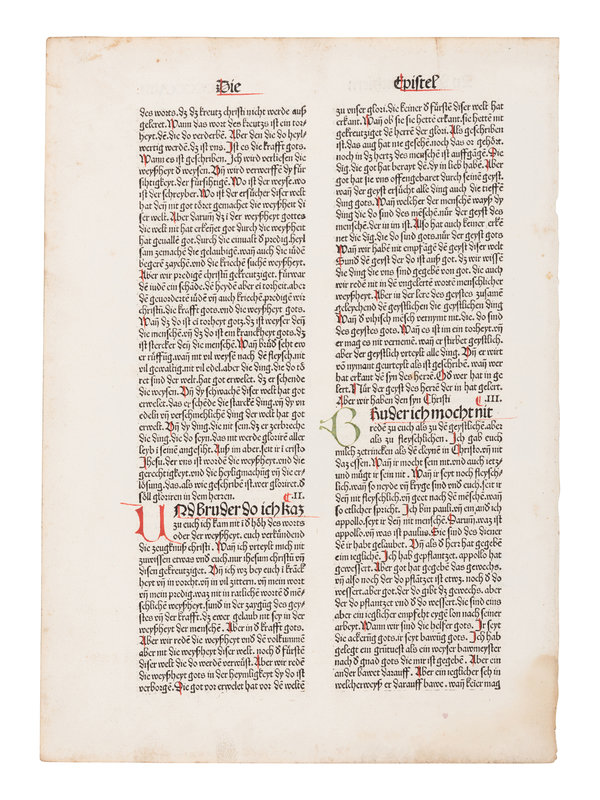 Die
des worts. dz dz kreutz christi nicht werde auß
geleret. Wann das wort des kreutzs ist ein tor-
heyt. dē. die do verderbē. Aber den die do heyl-
wertig werdē. dz ist vns. Ist es die krafft gots.
Wann es ist geschriben. Ich wird verliesen die
weyßheyt d weysen. Vñ wird verwerffē dy für
sihtigkeyt. der fürsihtigē. Wo ist der weyse. wo
ist der schreyber. Wo ist der ersücher diser welt
hat deñ nit got töret gemachet die weyßheit di
ser welt. Aber darum dz i der weyßheyt gottes
die welt nit hat erkēnet got durch die weyßheit
hat geuallē got. durch die
sam zemachē die gelaubigē. wañ auch die iudē
begerē zaychē. vnd die kriechē suchē weyßheyt.
Aber wir predigē christū gekreutziget. fürwar
dē iudē ein schādē. dē heydē aber ei torheit. aber
dē geuorderē iudē vñ auch kriechē. predigē wir
christū. die krafft gots. vnd die weyßheyt gots.
Wañ dz do ist ei torheyt gotz. dz ist weyser deñ
die menschē. vñ dz do ist ein kranckheyt gots. dz
ist stercker deñ die menschē. Wañ brüd seht ew
er rüffūg. wañ nit vil weysē nach dē fleysch. nit
vil gewaltig. nit vil edel. aber die ding. die do tö
ret sind der welt. hat got erwelet. dz er schende
die weysen. Vñ dy schwachē diser welt hat got
erwelet. das er schēde die starckē ding. vñ dy vn
edeln vñ verschmehlichē ding der welt hat got
erwelt. Vñ dy ding. die nit sein. dz er zerbreche
die ding. die do seyn. das nit werde gloriret aller
leyb i seinē angesiht. Auß im aber. seit ir i cristo
Ihesu. der vns ist wordē die weyßheyt. vnd die
gerechtigkeyt. vnd die heyligmachūg vñ die er-
lösung. das. als wie geschribē ist. wer gloriret. d
söll gloriren in dem herren. C. II.
UNd Bruder do ich kaz
zu euch ich kam nit i d höh des worts
oder der weyßheyt. euch verkündend
die zeugknuß christi. Wañ ich vrteylt mich nit
zuwissen etwas vnd euch. nur ihesum christū vñ
disen gekreutziget. Vñ ich wz bey euch i kräck
heyt vñ in vorcht. vñ in vil zittern. vñ mein wort
vñ mein predig. waz nit in ratlichē wortē d mē-
schlichē weyßheyt. sund in der zaygūg des gey-
stes vñ der krafft. dz ewer gelaub nit sey in der
weyßheyt der menschē. Aber in d krafft gots.
Aber wir redē die weyßheyt vnd dē volkumnē
aber nit die weyßheyt diser welt. noch d fürstē
diser welt die do werdē verwüst. Aber wir redē
die weyßheyt gots in der heymligkeyt dy do ist
verborgē. Die got vor erwelet hat vor dē weltē
Epistel
zu vnser glori. die keiner d fürstē diser welt hat
erkant. Wañ ob sie sie hettē erkant. sie hettē nit
gekreutziget dē herrē der glori. Als geschriben
ist. das aug hat nie gesehē. noch das or gehört.
noch in dz hertz des menschē ist auffgāgē. Die
dig. die got hat beraÿt dē dy in lieb habē. Aber
got hat sie vns offengebaret durch seinē geyst.
wañ der geyst ersücht alle ding auch die tieffē
ding gots. Wañ welcher der menschē wayß dy
ding die do sind des mēschē. nur der geyst des
menschē. der in im ist. Also hat auch keiner erkē
net die dig. die do sind gots. nür der geyst gots
Wañ wir habē nit empfāgē dē geyst diser welt
Sund dē geyst der do ist auß got. dz wir wissē
die ding die vns sind gegebē von got. die auch
wir redē nit in dē vngelertē wortē menschlicher
weyßheyt. Aber in der lere des geystes zusamē
geleychend dē geystlichen die geystlichen ding
Wañ d vihisch mēsch vernymt nit. die. do sind
des geystes gots. Wañ es ist im ein torheyt. vñ
er mag es nit vernemē. wañ er stirbet geystlich.
aber der geystlich vrteylt alle ding. Vñ er wirt
vō nymant geurteylt als ist geschribē. wañ wer
hat erkant dē syn des herrē. Od wer hat in ge
lert. Nür der geyst des herrē der in hat gelert.
Aber wir haben den syn Christi C. III.
BRuder ich mocht nit
redē zu euch als zu dē geystlichē. aber
als zu fleyschlichen. Ich gab euch
milch zetrincken als dē cleynē in Christo. vñ nit
daz essen. Wañ ir mocht sein nit. vnd auch ietz-
und müg ir sein nit. Wañ ir seyt noch fleysch-
lich. wañ so neyde vñ kryge sind vnd euch. seyt
ir deñ nit fleyschlich. vñ geet nach dē mēschē. wañ
so etlicher spricht. Ich bin pauli. vñ ein and ich
appollo. seyt ir deñ nit menschē. Darum. waz ist
appollo. vñ was ist paulus. Sie sind des diener
dē ir habt gelaubet. Vñ als d herr hat gegebē
eim ieglichē. Ich hab gepflantzet. appollo hat
gewessert. Aber got hat gegebē das gewechs.
vñ also noch der do pflātzet ist etwz. noch d do
wessert. aber got. der do gibt dz gewechs. aber
der do pflantzet vnd d do wessert. die sind eins
aber ein ieglicher empfeht eygē lon nach seiner
arbeyt. Wann wir sind die helfer gots. Ir seyt
die ackerūg gots. ir seyt bawūg gots. Ich hab
gelegt ein grütuest als ein weyser bawmeyster
nach d gnad gots die mir ist gegebē. Aber ein
ander bawet darauff. Aber ein ieglicher seh in
welcherweyß er darauff bawe. wañ keier mag